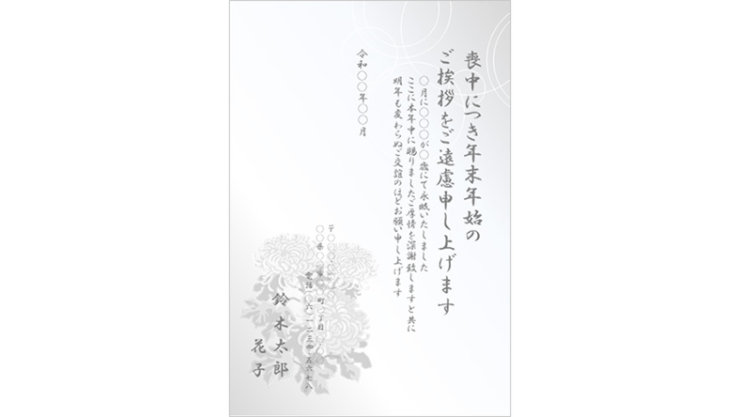 喪中につき年末年始の
ご挨拶をご遠慮申し上げます
〇月に〇〇〇が〇歳にて永眠いたしました
ここに本年中に賜りましたご厚情を深謝致しますと共に
明年も変わらぬご交誼のほどお願い申し上げます
令和〇〇年〇〇月
鈴木太郎
花子